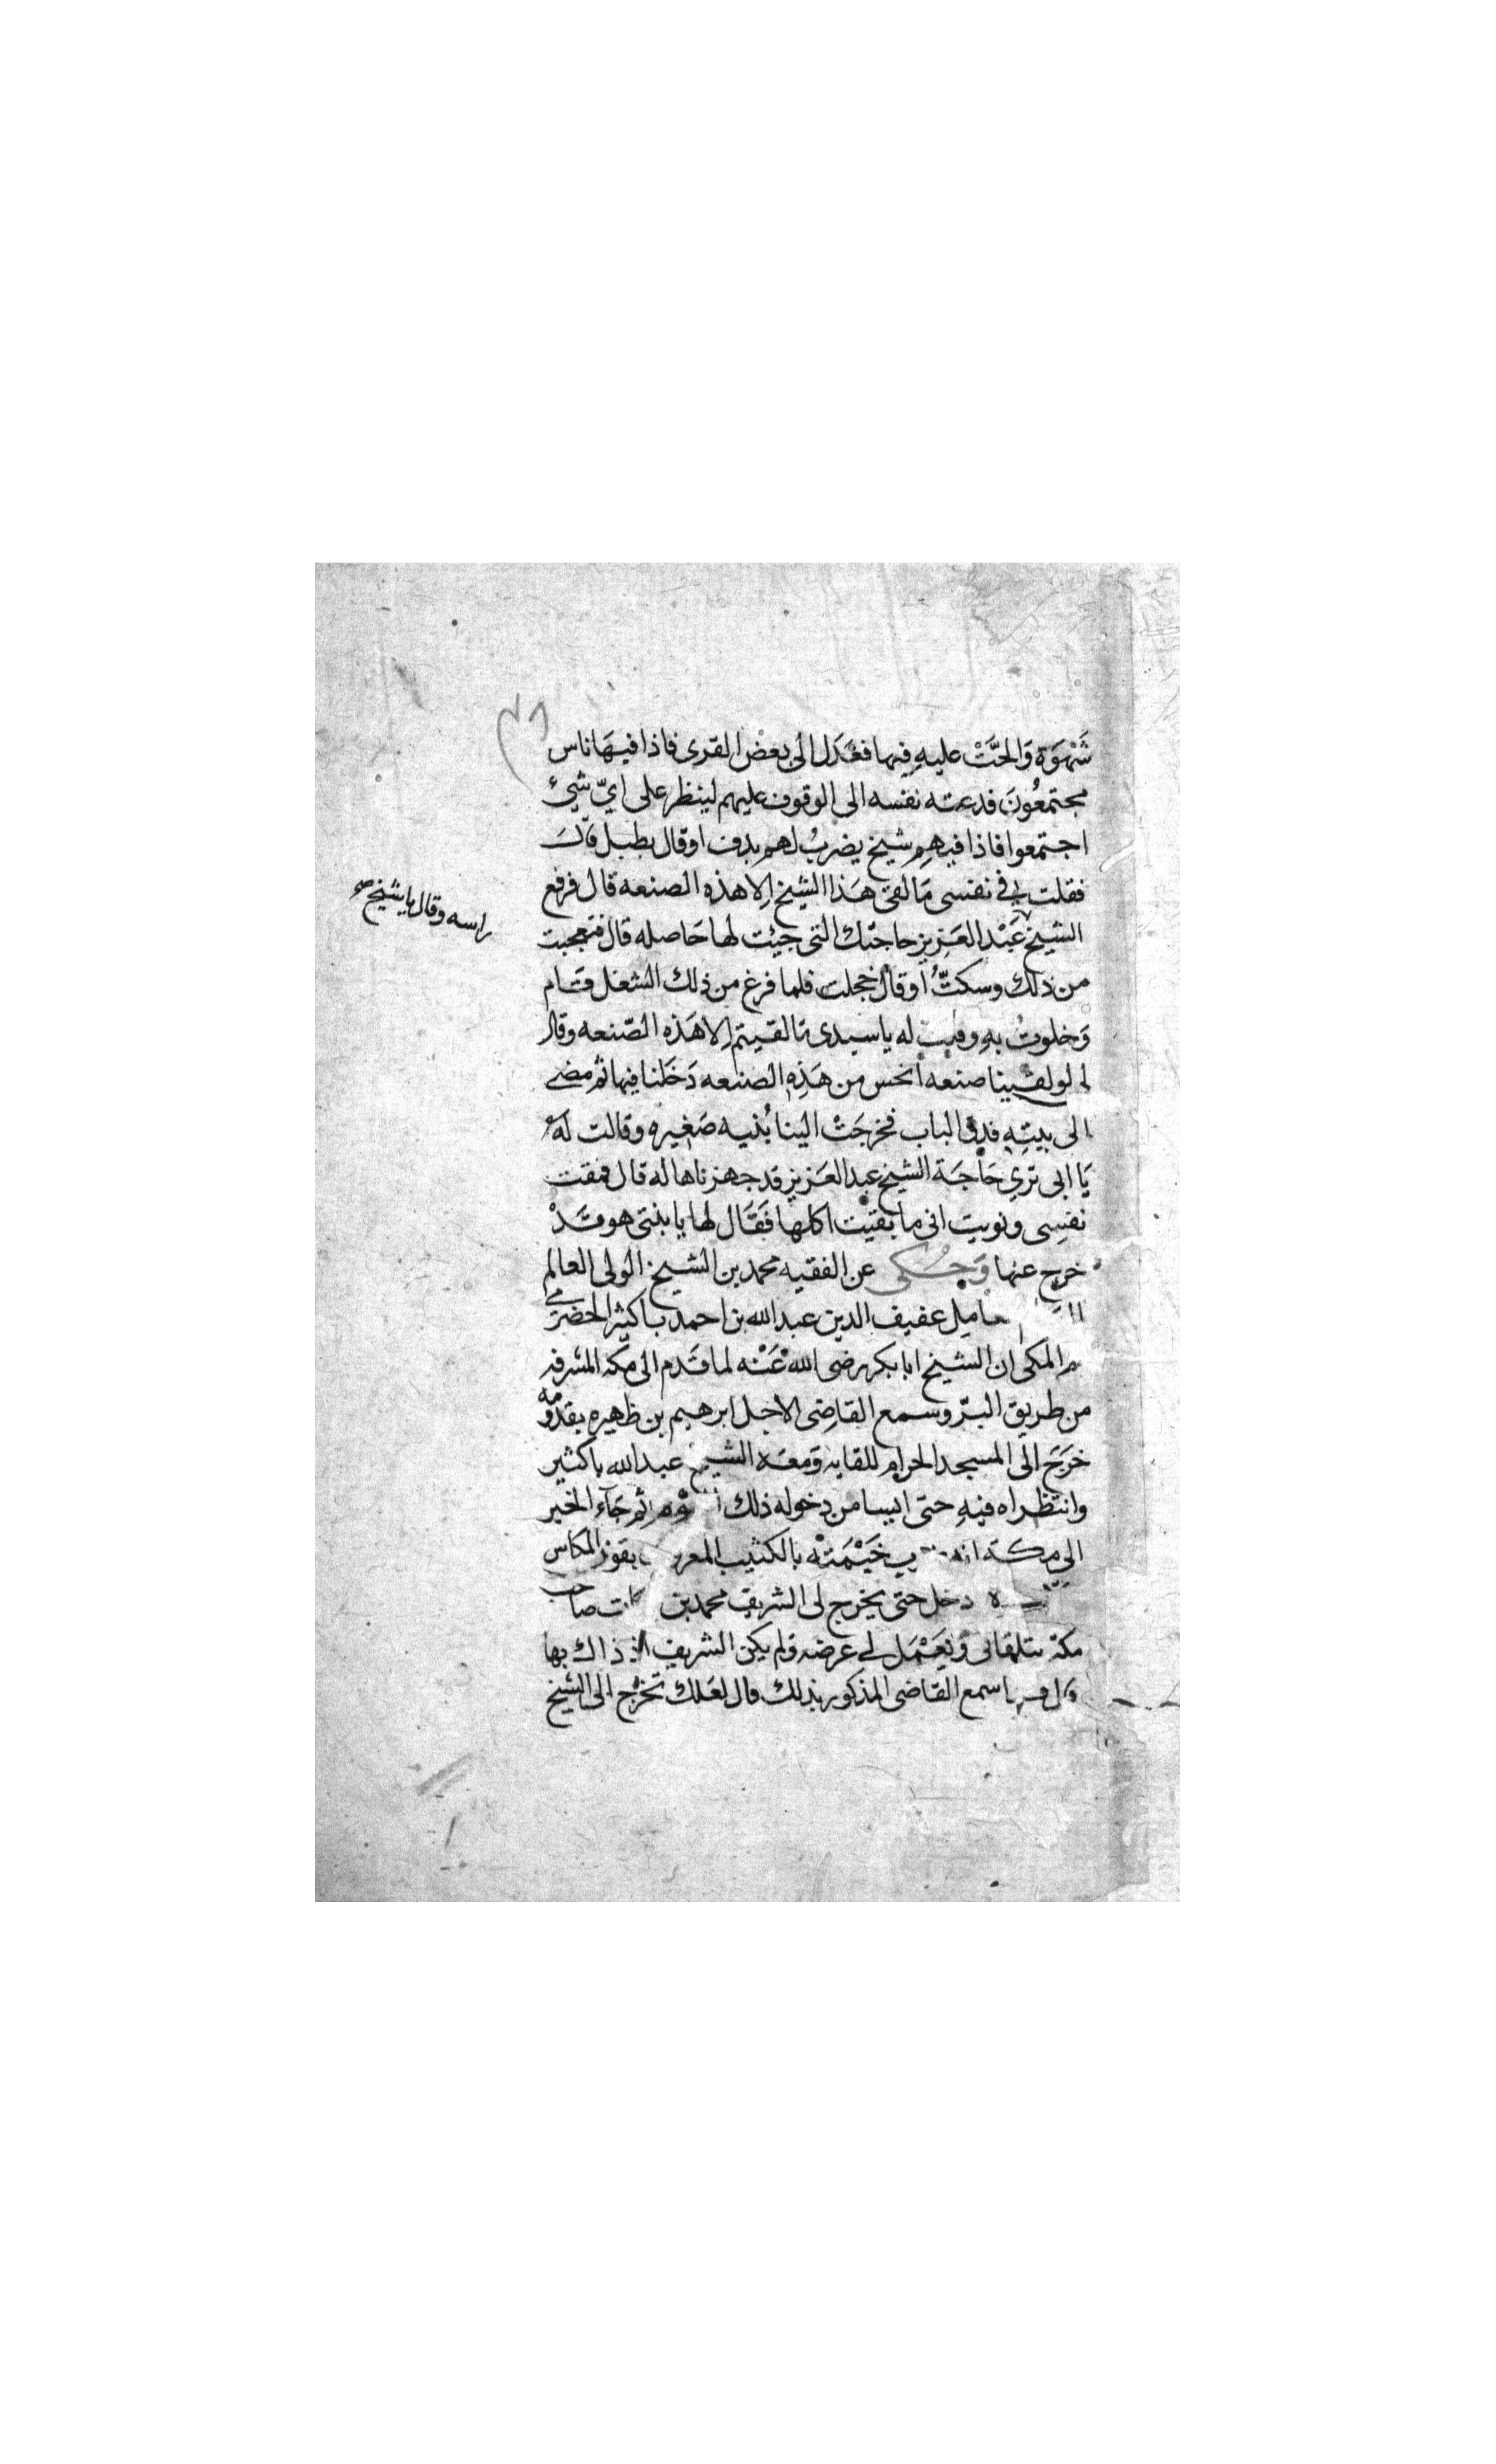 شَهْوَة وَالحَّتْ عليهِ فيها فعَدَل الى بعض القرى فاذا فيهَا ناس
مجتمعُونَ فدعته نفسه الى الوقوف عليهم لينظر على ايّ شيئ
اجتمعوا فاذا فيهم شيخ يضربُ لهم بدف اوقال بطبل قال
فقلت في نفسى مَا لقى هَذا الشيخ الا هذه الصنعه قال فرفع
راسه وقال يا شيخ صح
الشيخ عَبْد العَزيز حاجتك التى جيئت لها حَاصله قال فتعجبت
من ذلك وسكتُّ اوقال خجلت فلما فرغ من ذلك الشغل قام
وَخلوتُ بهِ وقلت له يا سيدى ما لقيتم الا هَذه الصّنعه وقال
لى لو لقينا صنعه انحس من هَذِه الصنعه دَخَلنا فيها ثم مضى
الى بيتِهِ فدق الباب فخرجَتْ الينا بُنيه صَغيره وقالت له
يَا ابى ترى حَاجَة الشيخ عبد العَزيز قد جهزناها له قال فمقت
نفسِى ونويت انى ما بقيت اكلها فَقَال لها يا بنتى هو قَدْ
خرج عنها وَحُكى عن الفقيه محمد بن الشيخ الولى العالم
عفيف الدين عبد الله بن احمد باكثير الحضرمى
المكى ان الشيخ ابا بكر رضى الله عَنْه لما قَدم الى مكه المشرفه
من طريق البرّ وسمع القاضِى الاجل ابرهيم بن ظهيره بقدومه
خرَجَ الى المسجد الحرام للقايه وَمعَه الشيخ عبد الله باكثير
وانتظراه فيهِ حتى ايسا من دخوله ذلك اليوم ثم جَآء الخبر
الى مكة انه خَيْمَتْه بالكثيب المعروف بقوز المكاس
دخل حتى يخرج لى الشريف محمد بن بركات صاحب
مكة يتلقانى وَيَعْمَل لى عرضه ولم يكن الشريف اذ ذاك بها
قال فلما سمع القاضى المذكور بذلك قال لعَلك تخرُج الى الشيخ